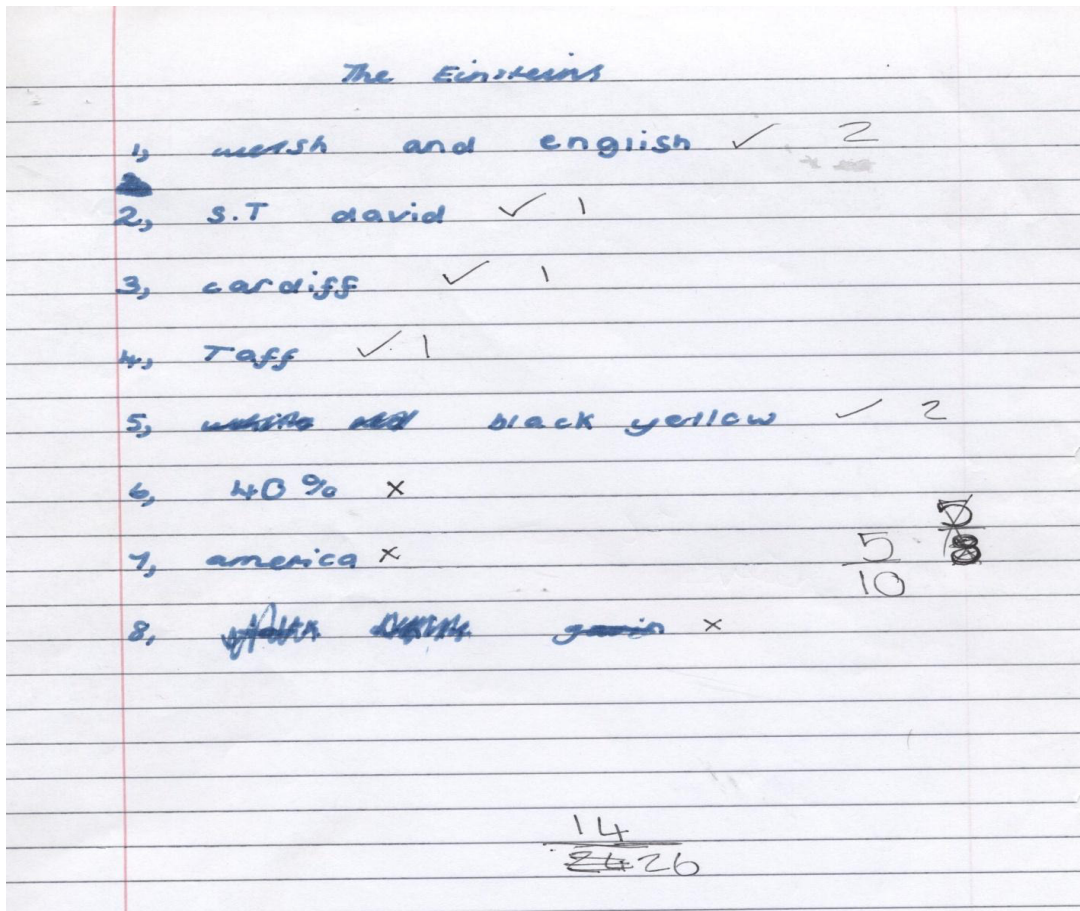 The Einsteins
1, welsh and english ✓ 2
2, S.T david ✓ 1
3, cardiff ✓ 1
4, Taff ✓ 1
5, black yellow ✓ 2
6, 40% x
7, america x
5
10
5
8
8, x
14
24 26